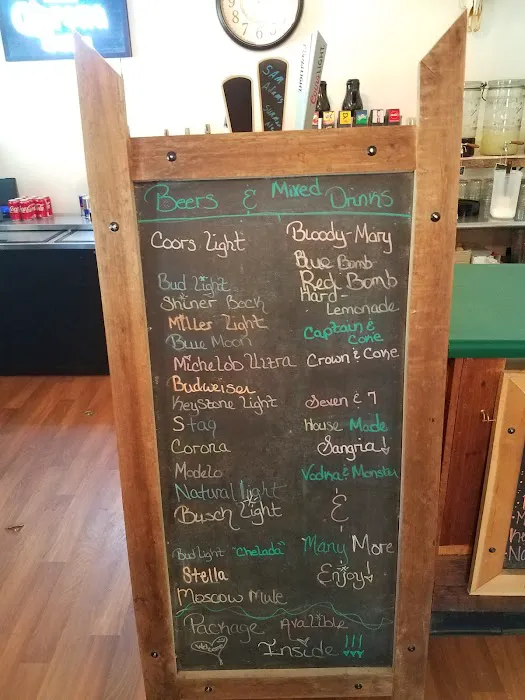 SAM
Adams
SUMMER
COORS LIGHT
Beers & Mixed Drinks
Coors Light
Bud Light
Shiner Bock
Miller Light
Blue Moon
Michelob Ultra
Budweiser
KeyStone Light
Stag
Corona
Modelo
Natural light
Busch Light
Bud Light "Chelada"
Stella
Moscow Mule
Bloody-Mary
Blue Bomb
Red Bomb
Hard-
Lemonade
Captain &
Coke
Crown & Coke
Seven & 7
House Made
Sangria!
Vodka & Monster
&
Many More
Enjoy!
Package Avalible
Inside !!!